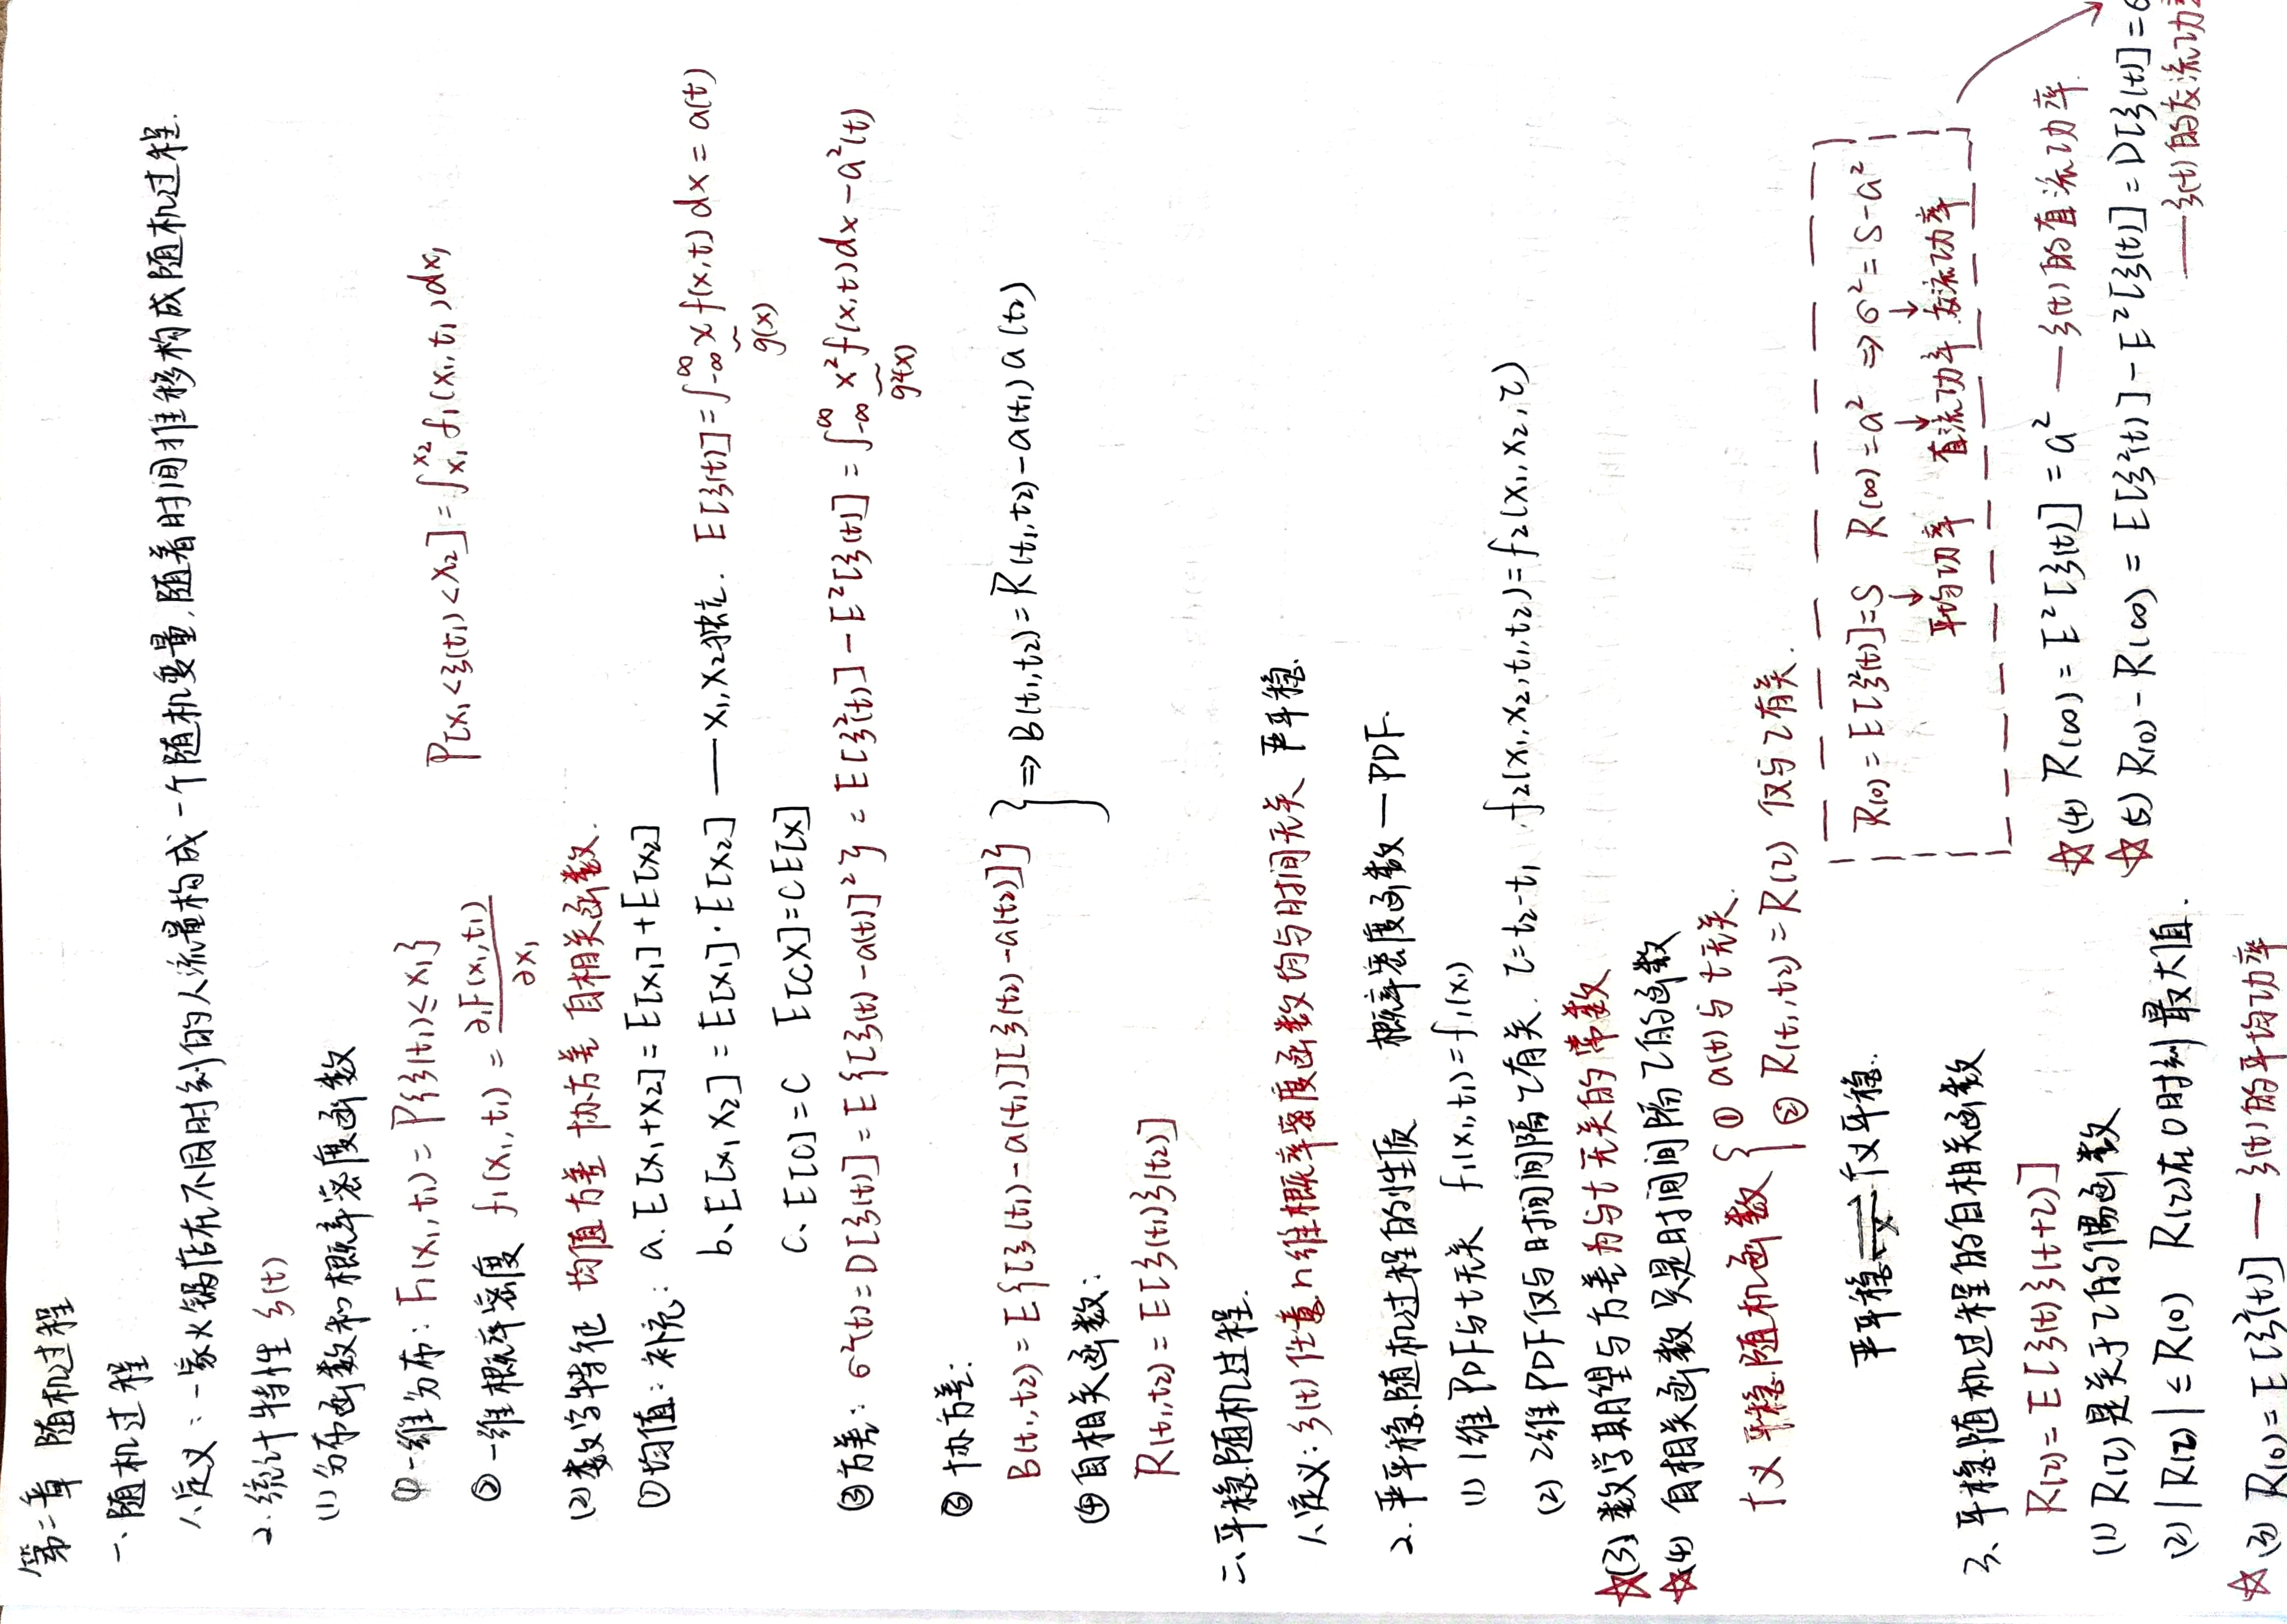 第二章 随机过程
一、随机过程
1、定义：一家火锅店在不同时刻的人流量构成一个随机变量,随着时间推移构成随机过程.
2. 统计特性 ξ(t)
(1) 分布函数和概率密度函数
①一维分布: F₁(x₁,t₁) = P{ξ(t₁)≤x₁}
P[x₁<ξ(t₁)<x₂] = ∫_{x₁}^{x₂} f₁(x₁,t₁)dx₁
② 一维概率密度 f₁(x₁,t₁) = ∂₁F(x₁,t₁)/∂x₁
(2) 数字特征 均值 方差 协方差 自相关函数.
①均值: 补充: a. E[x₁+x₂] = E[x₁]+E[x₂]
b、E[x₁x₂] = E[x₁]·E[x₂] — x₁,x₂独立. E[ξ(t)] = ∫_{-∞}^{∞} x f(x,t) dx = a(t)
g(x)
c、E[C] = C E[CX] = CE[X]
②方差: σ²(t) = D[ξ(t)] = E{[ξ(t)-a(t)]²} = E[ξ²(t)] - E²[ξ(t)] = ∫_{-∞}^{∞} x² f(x,t)dx - a²(t)
g²(x)
③ 协方差:
B(t₁,t₂) = E{[ξ(t₁)-a(t₁)][ξ(t₂)-a(t₂)]} } ⇒ B(t₁,t₂) = R(t₁,t₂) - a(t₁) a(t₂)
④自相关函数:
R(t₁,t₂) = E[ξ(t₁)ξ(t₂)]
二、平稳随机过程.
1、定义: ξ(t) 任意n维概率密度函数均与时间无关 严平稳.
2. 严平稳随机过程的性质 概率密度函数 — PDF.
(1) 1维PDF与t无关 f₁(x₁,t₁) = f₁(x₁)
(2) 2维PDF仅与时间间隔τ有关. τ=t₂-t₁ f₂(x₁,x₂,t₁,t₂) = f₂(x₁,x₂,τ)
☆(3) 数学期望与方差为与t无关的常数
☆(4) 自相关函数只是时间间隔τ的函数
广义平稳随机函数 { ① a(t)与t无关.
② R(t₁,t₂) = R(τ) 仅与τ有关.
严平稳 ⇌ 广义平稳.
x
R(0) = E[ξ²(t)] = S R(∞) = a² ⇒ σ² = S-a²
↓ ↓ ↓
平均功率 直流功率 交流功率
3、平稳随机过程的自相关函数
R(τ) = E[ξ(t)ξ(t+τ)]
(1) R(τ)是关于τ的偶函数
(2) |R(τ)| ≤ R(0) R(τ)在0时刻最大值.
☆(3) R(0) = E[ξ²(t)] — ξ(t)的平均功率
☆(4) R(∞) = E²[ξ(t)] = a² — ξ(t)的直流功率.
☆(5) R(0) - R(∞) = E[ξ²(t)] - E²[ξ(t)] = D[ξ(t)] = σ
— ξ(t)的交流功